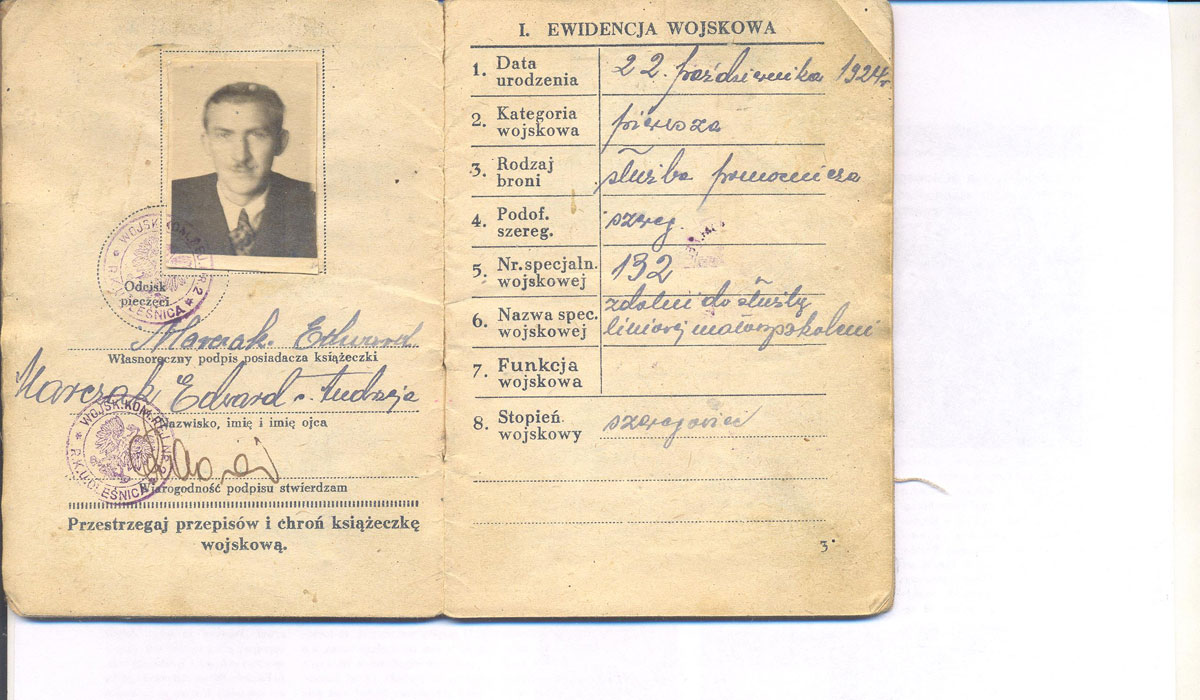 WOJSK. KOM. REJ. NR. 2
R.K.U. OLEŚNICA
Odcisk
pieczęci
Marczak Edward
Własnoręczny podpis posiadacza książeczki
Marczak Edward s. Andrzeja
Nazwisko, imię i imię ojca
WOJSK. KOM. REJ. NR. 2
R.K.U. OLEŚNICA
Wiarogodność podpisu stwierdzam
Przestrzegaj przepisów i chroń książeczkę
wojskową.
I. EWIDENCJA WOJSKOWA
1. Data urodzenia 22. października 1924r
2. Kategoria wojskowa pierwsza
3. Rodzaj broni służba pomocnicza
4. Podof. szereg. szereg.
5. Nr. specjaln. wojskowej 132
6. Nazwa spec. wojskowej zdolni do służby
liniowej niewyszkoleni
7. Funkcja wojskowa
8. Stopień wojskowy szeregowiec
3